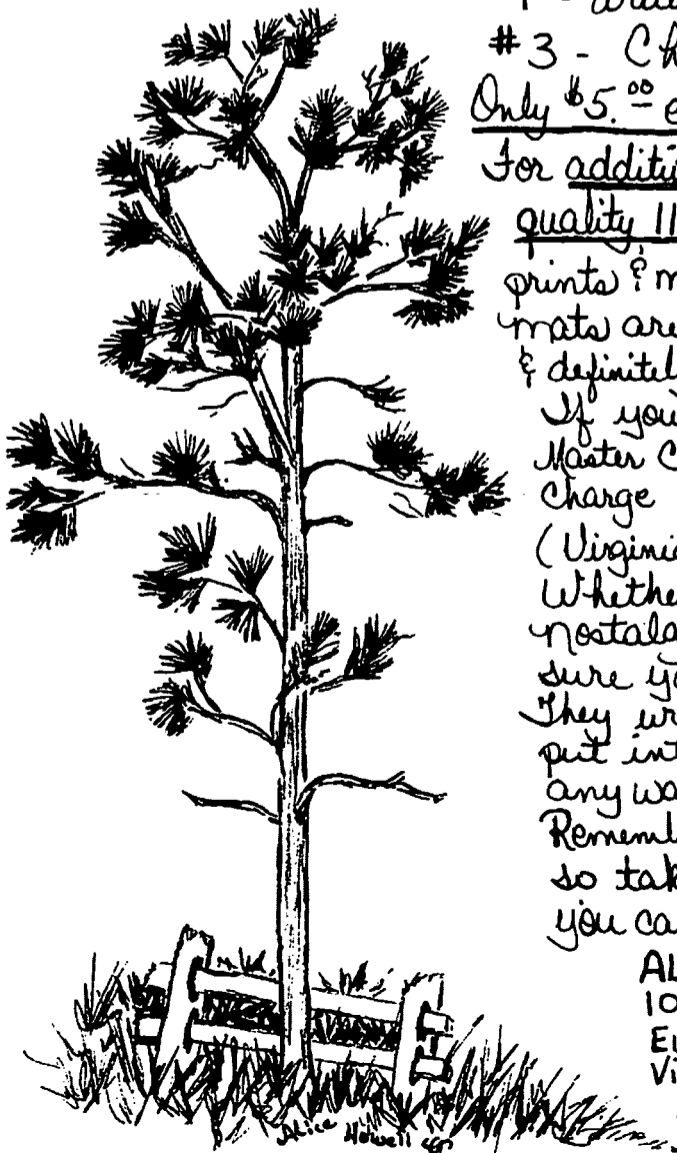 #3 - Ch
Only $5.00 e
For additi
quality 11
prints & m
mats are
& definitel
If you
Master C
Charge
(Virginia
Whethe
nostalg
sure yo
They wr
put int
any wa
Rememb
so tak
you ca
AL
10
Vi
Alice Howell